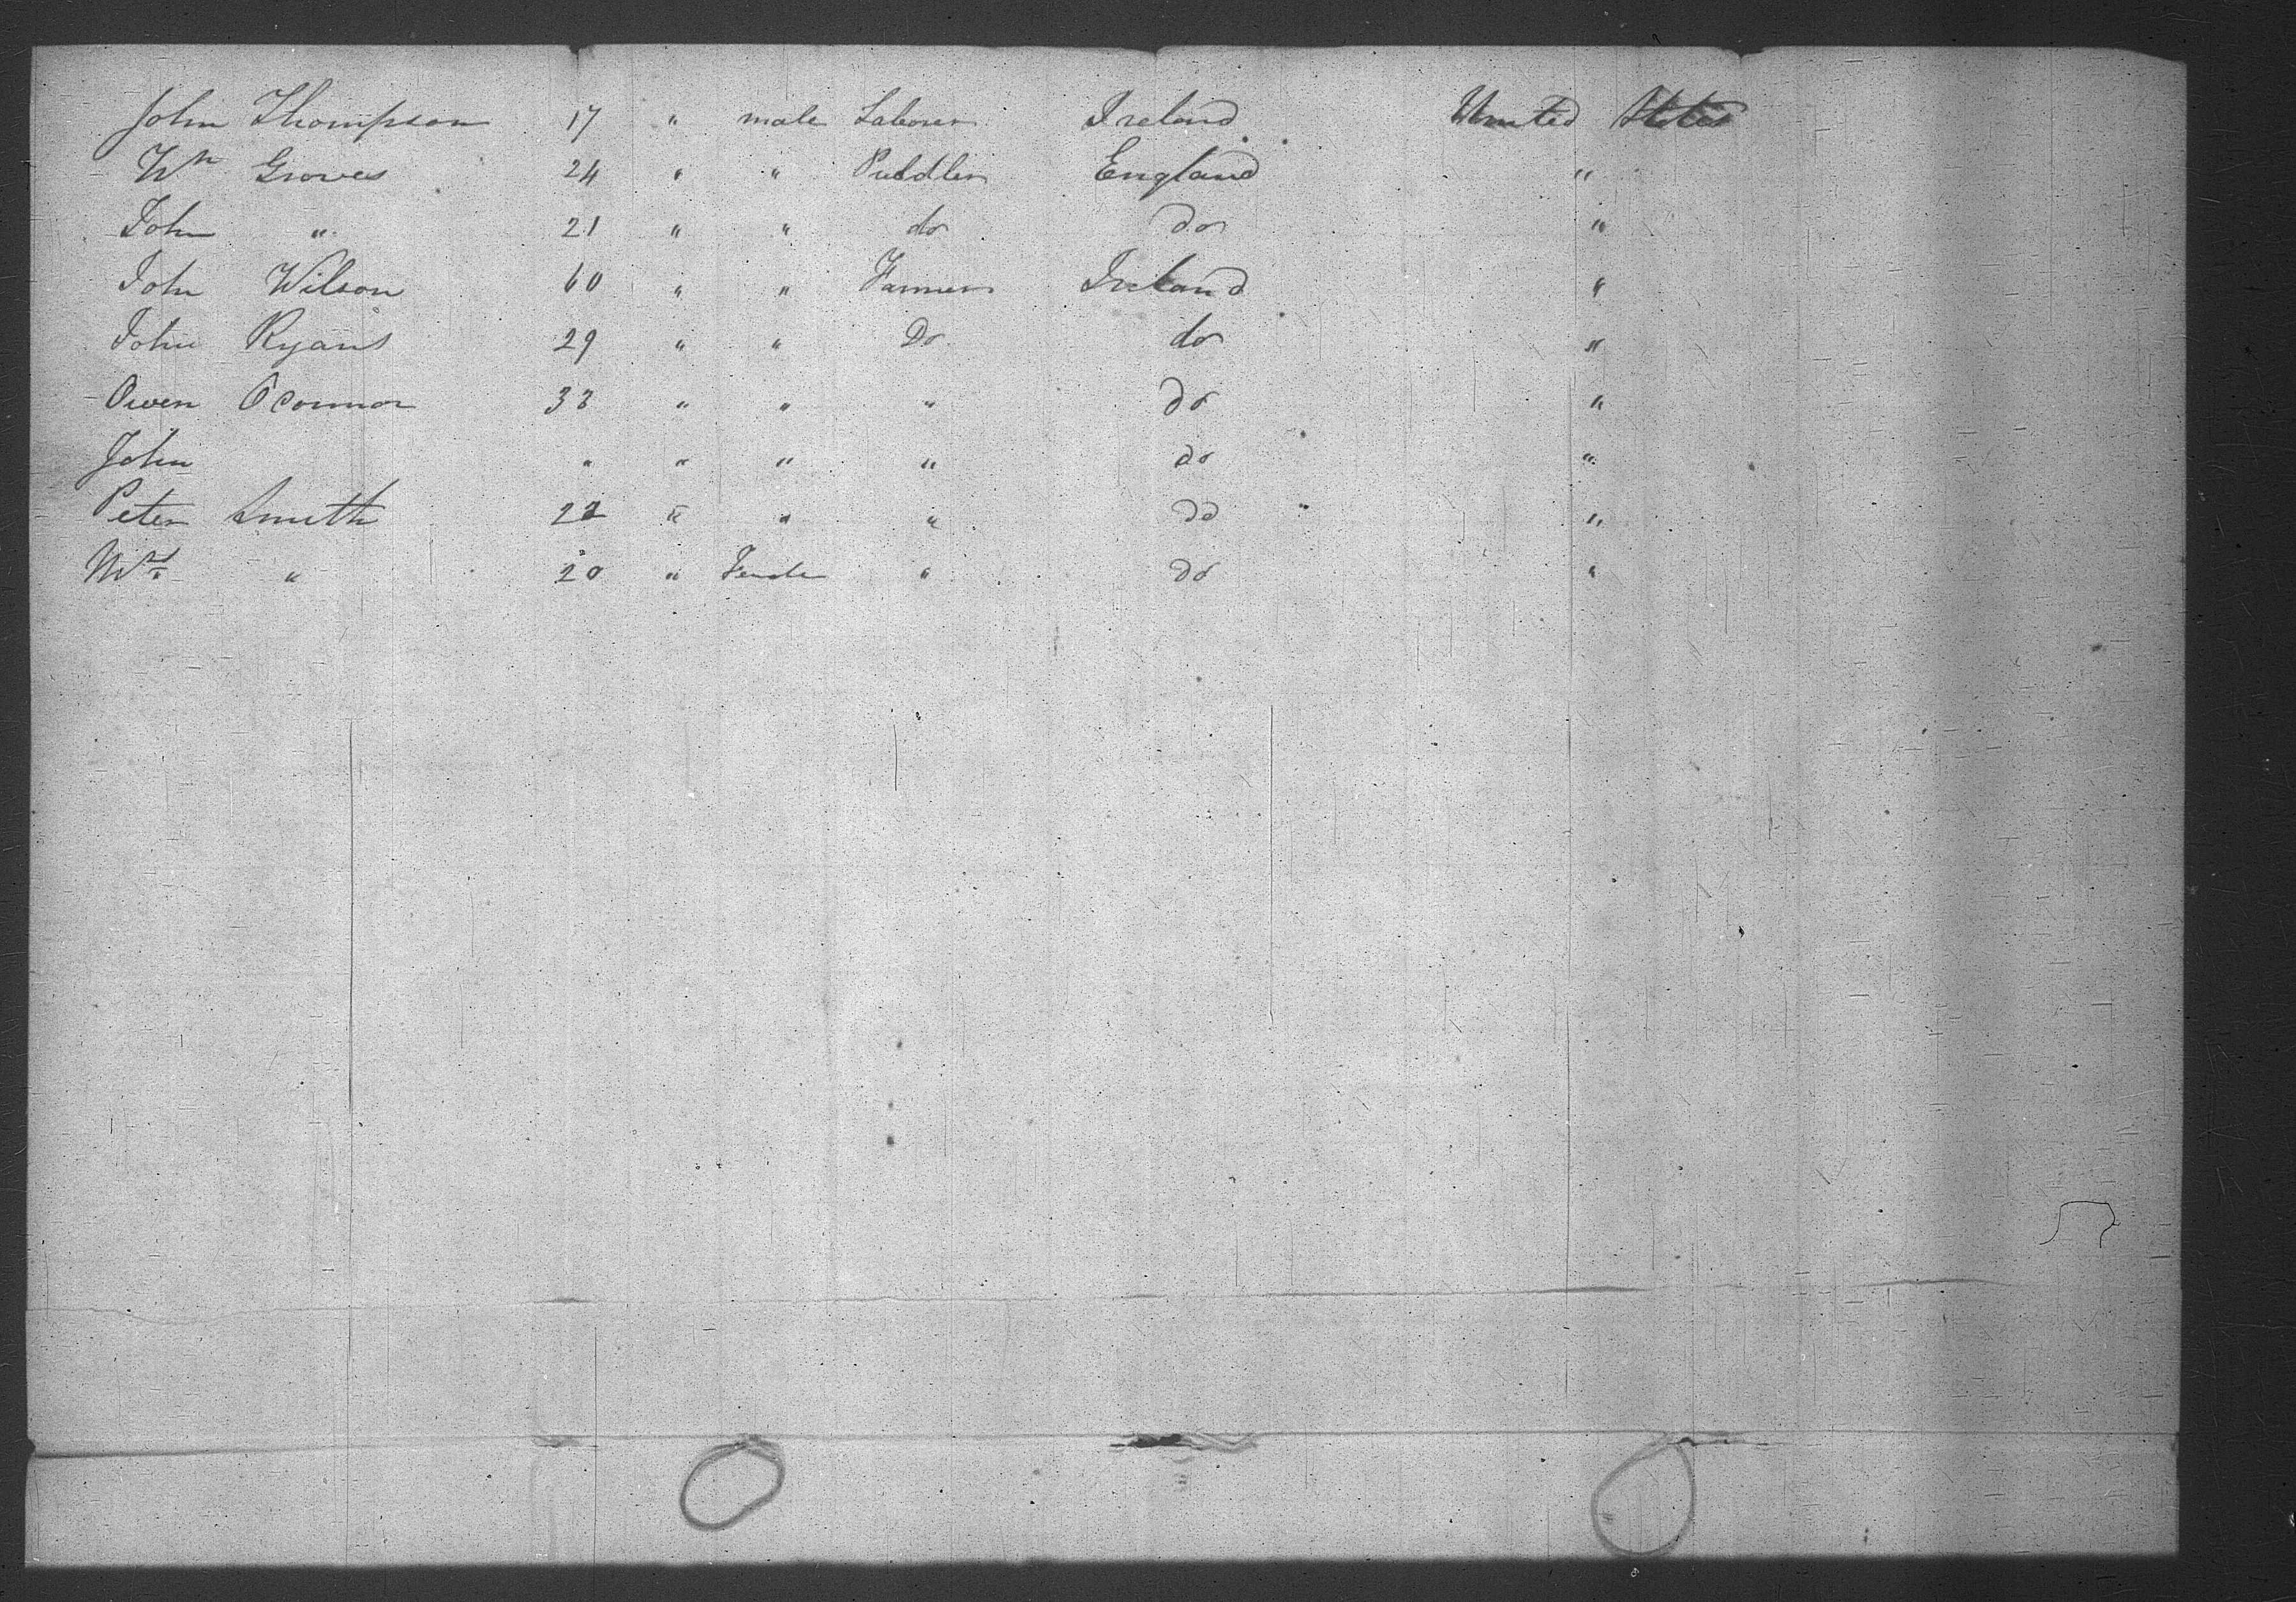 John Thompson 17 " male Laborer Ireland United States
Wm Groves 24 " " Puddler England "
John " 21 " " do do "
John Wilson 60 " " Farmer Ireland "
John Ryans 29 " " Do do "
Owen OConnor 33 " " " do "
John " " " " do "
Peter Smith 22 " " " do " "
Mrs " 20 " Female " do "